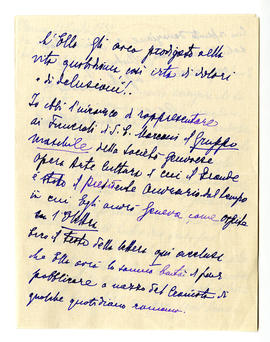 ch'Ella gli aveva prodigato nella
vita quotidiana così irta di dolori
e di delusioni!.
Io ebbi l'incarico di rappresentare
ai Funerali di S. E. Marconi il Gruppo
maschile della Società Genovese
Opere Arte Cultura di cui il Grande
è stato il presidente onorario dal tempo
in cui Egli onorò Genova come ospite
Ecco il testo della lettera qui acclusa
che Ella avrà la somma bontà di far
pubblicare a mezzo del Comitato di
qualche quotidiano romano.